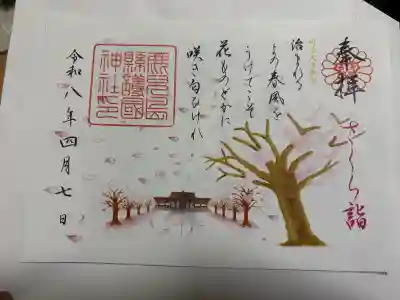 奉拝
さくら詣
治まれる
よの春風を
うけてこそ
花ものどかに
咲き匂ひけれ
鹿兒島
縣護國
神社印
令和八年四月七日